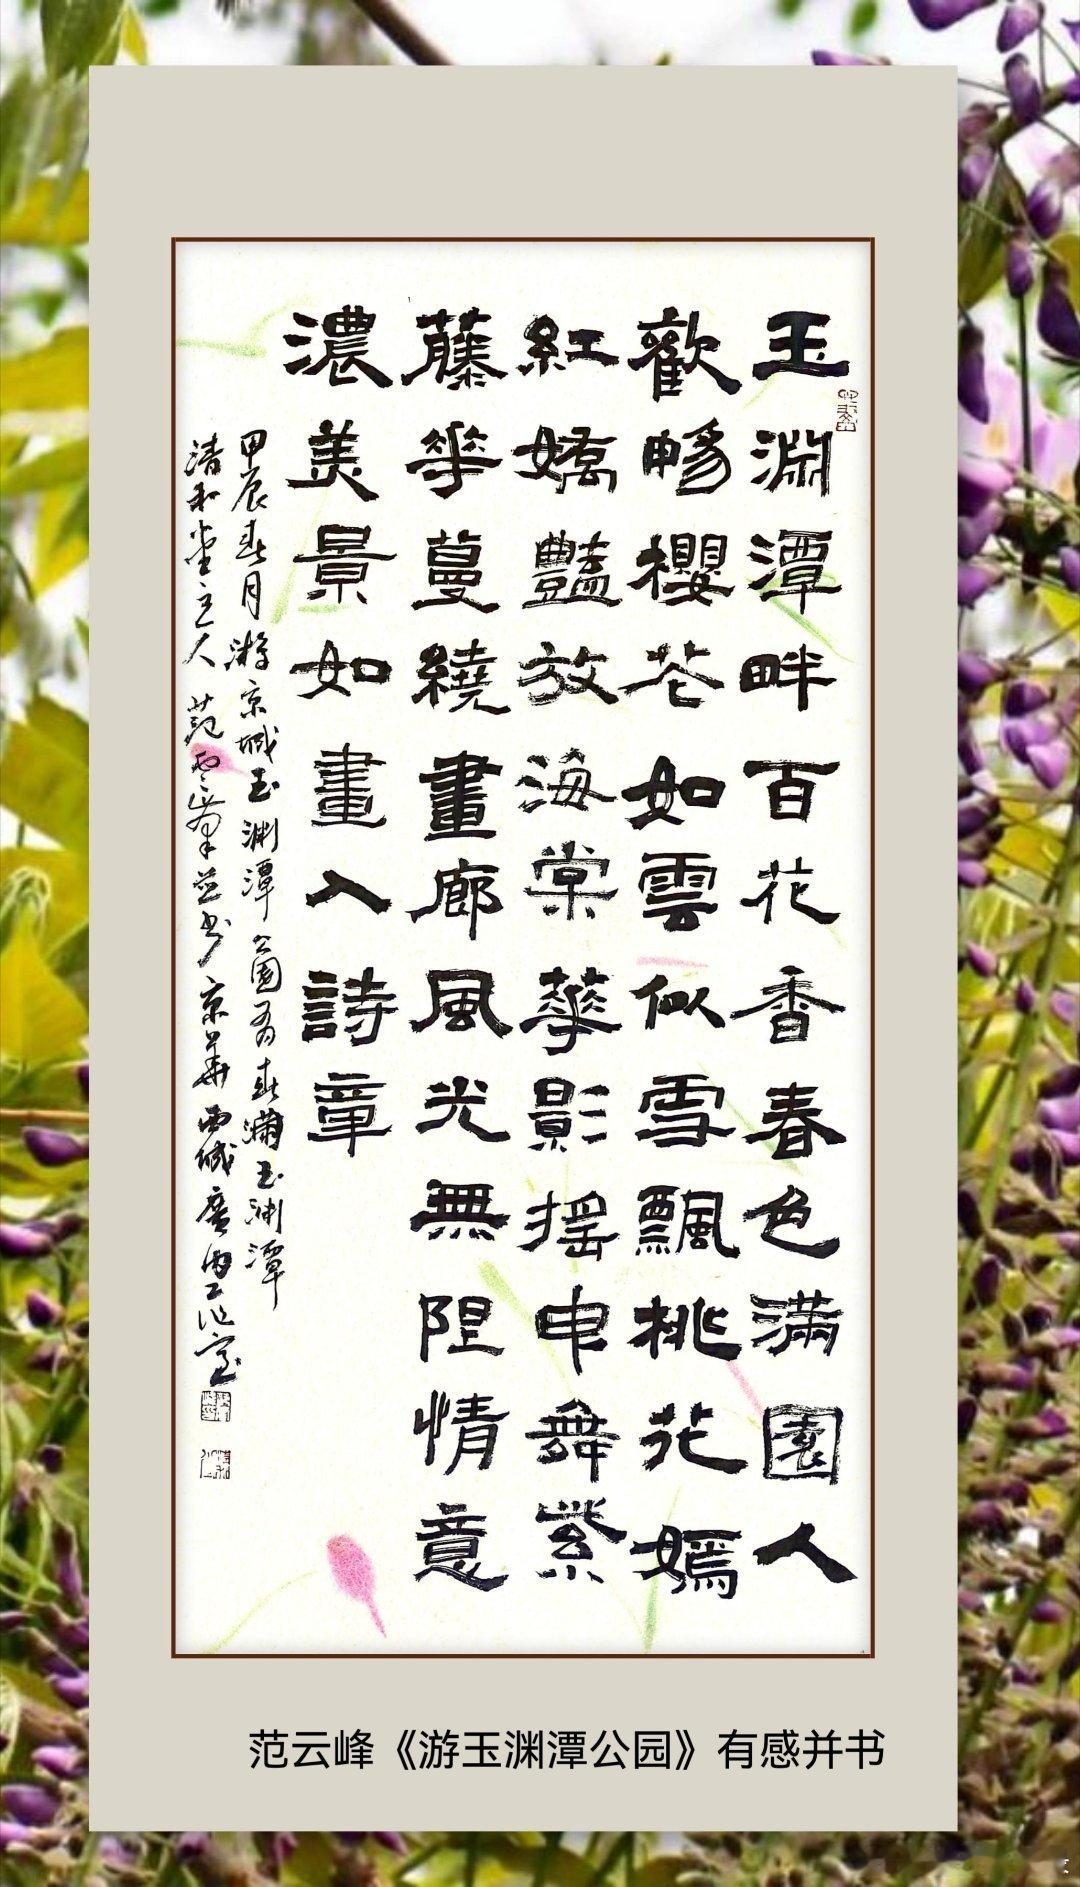 玉淵潭畔百花香春色滿園人
歡暢櫻花如雲似雪飄桃花嫣
紅嬌豔放海棠華影搖申舞紫
藤華蔓繞畫廊風光無陧情意
濃美景如畫入詩章
甲辰春月游京城玉渊潭公園有春满玉渊潭
清和堂主人范雲峯並书京華西城廣内工作室
范云峰《游玉渊潭公园》有感并书